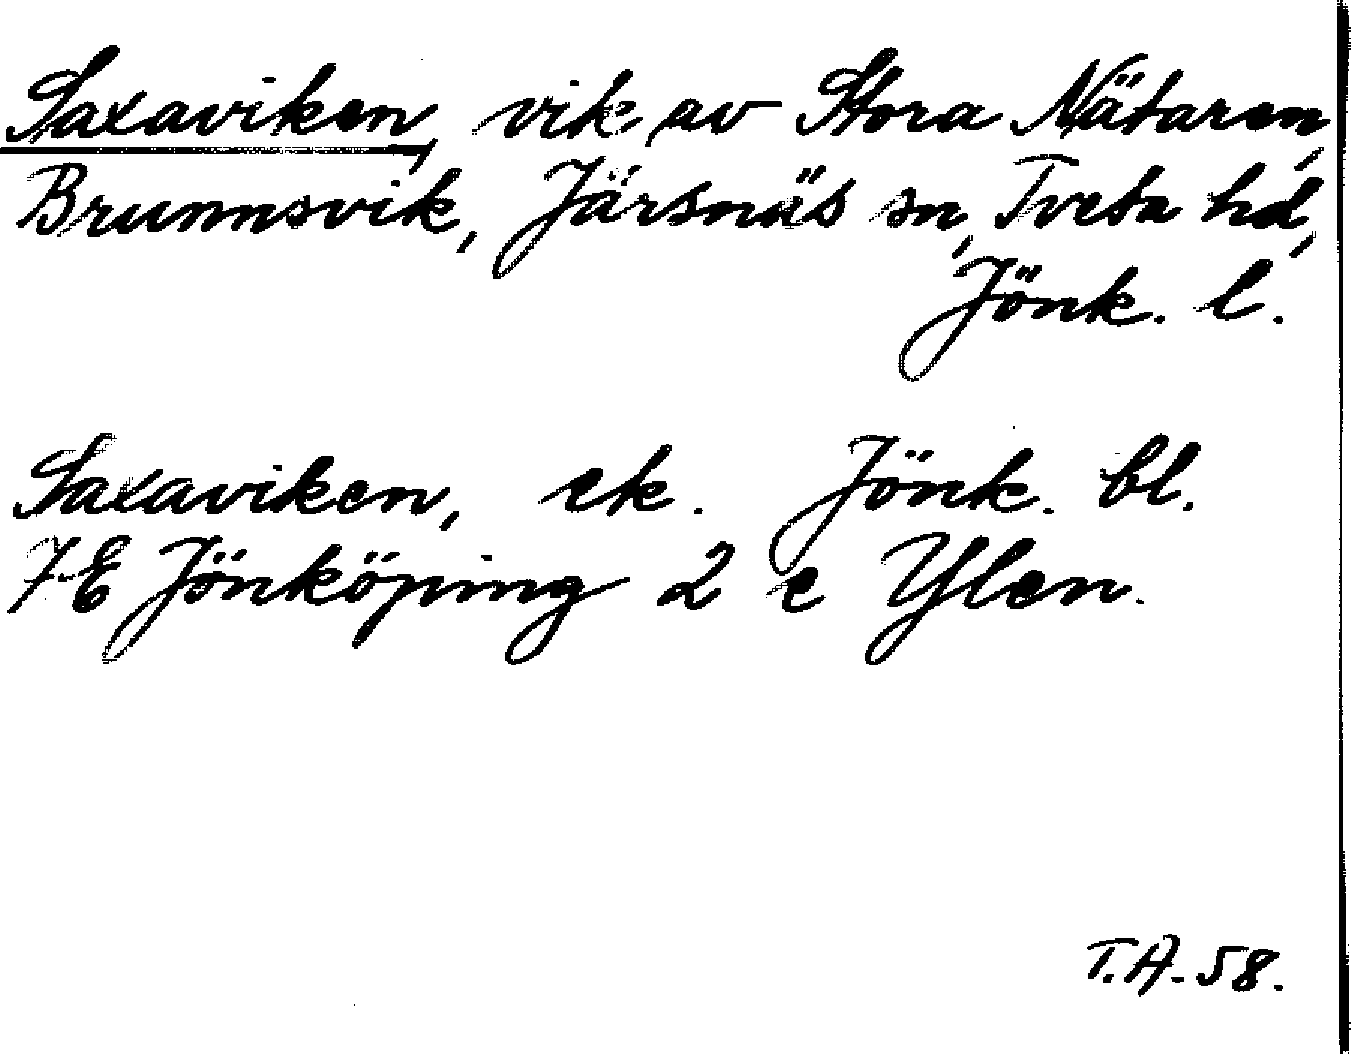 Saxaviken, vik av Stora Nätaren,
Brunnsvik, Järsnäs sn, Tveta hd,
Jönk. l.
Saxaviken, ek. Jönk. bl.
7E Jönköping 2 e Ylen.
T.A. 58.